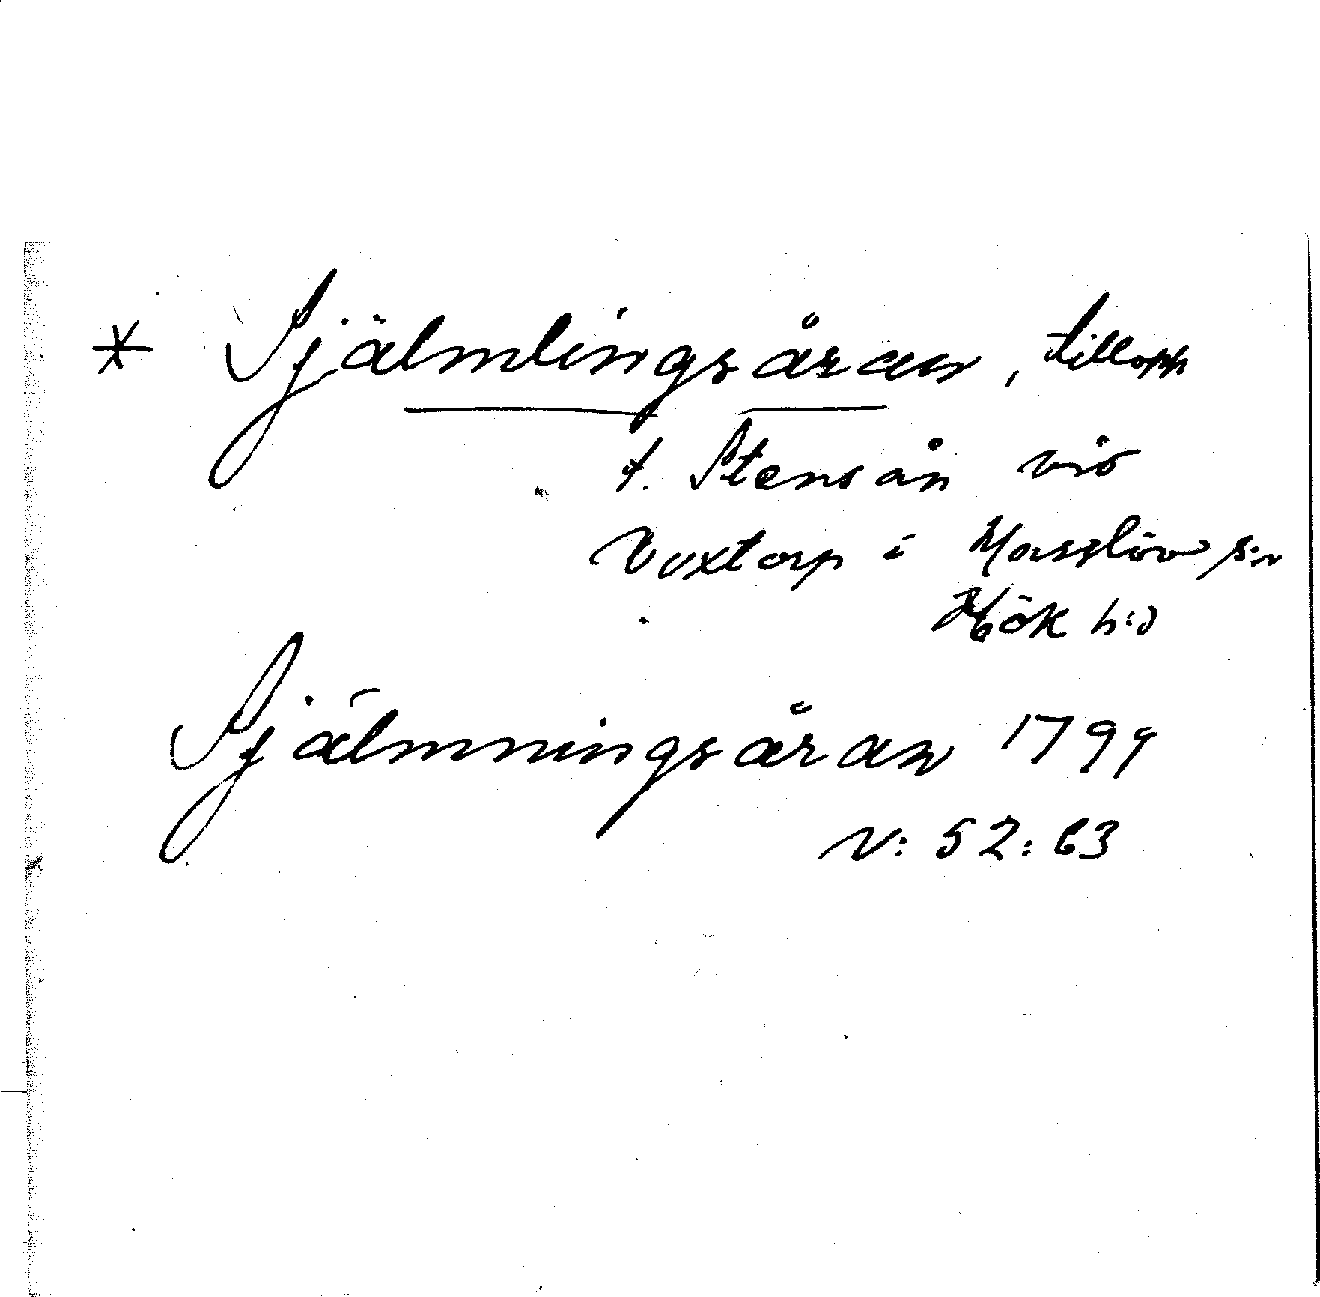 * Själmlingsåran, tillopp
t. Stensån vid
Voxtorp i Hasslöv s:n
Hök h:d
Själmningsåran 1799
V: 52: 63